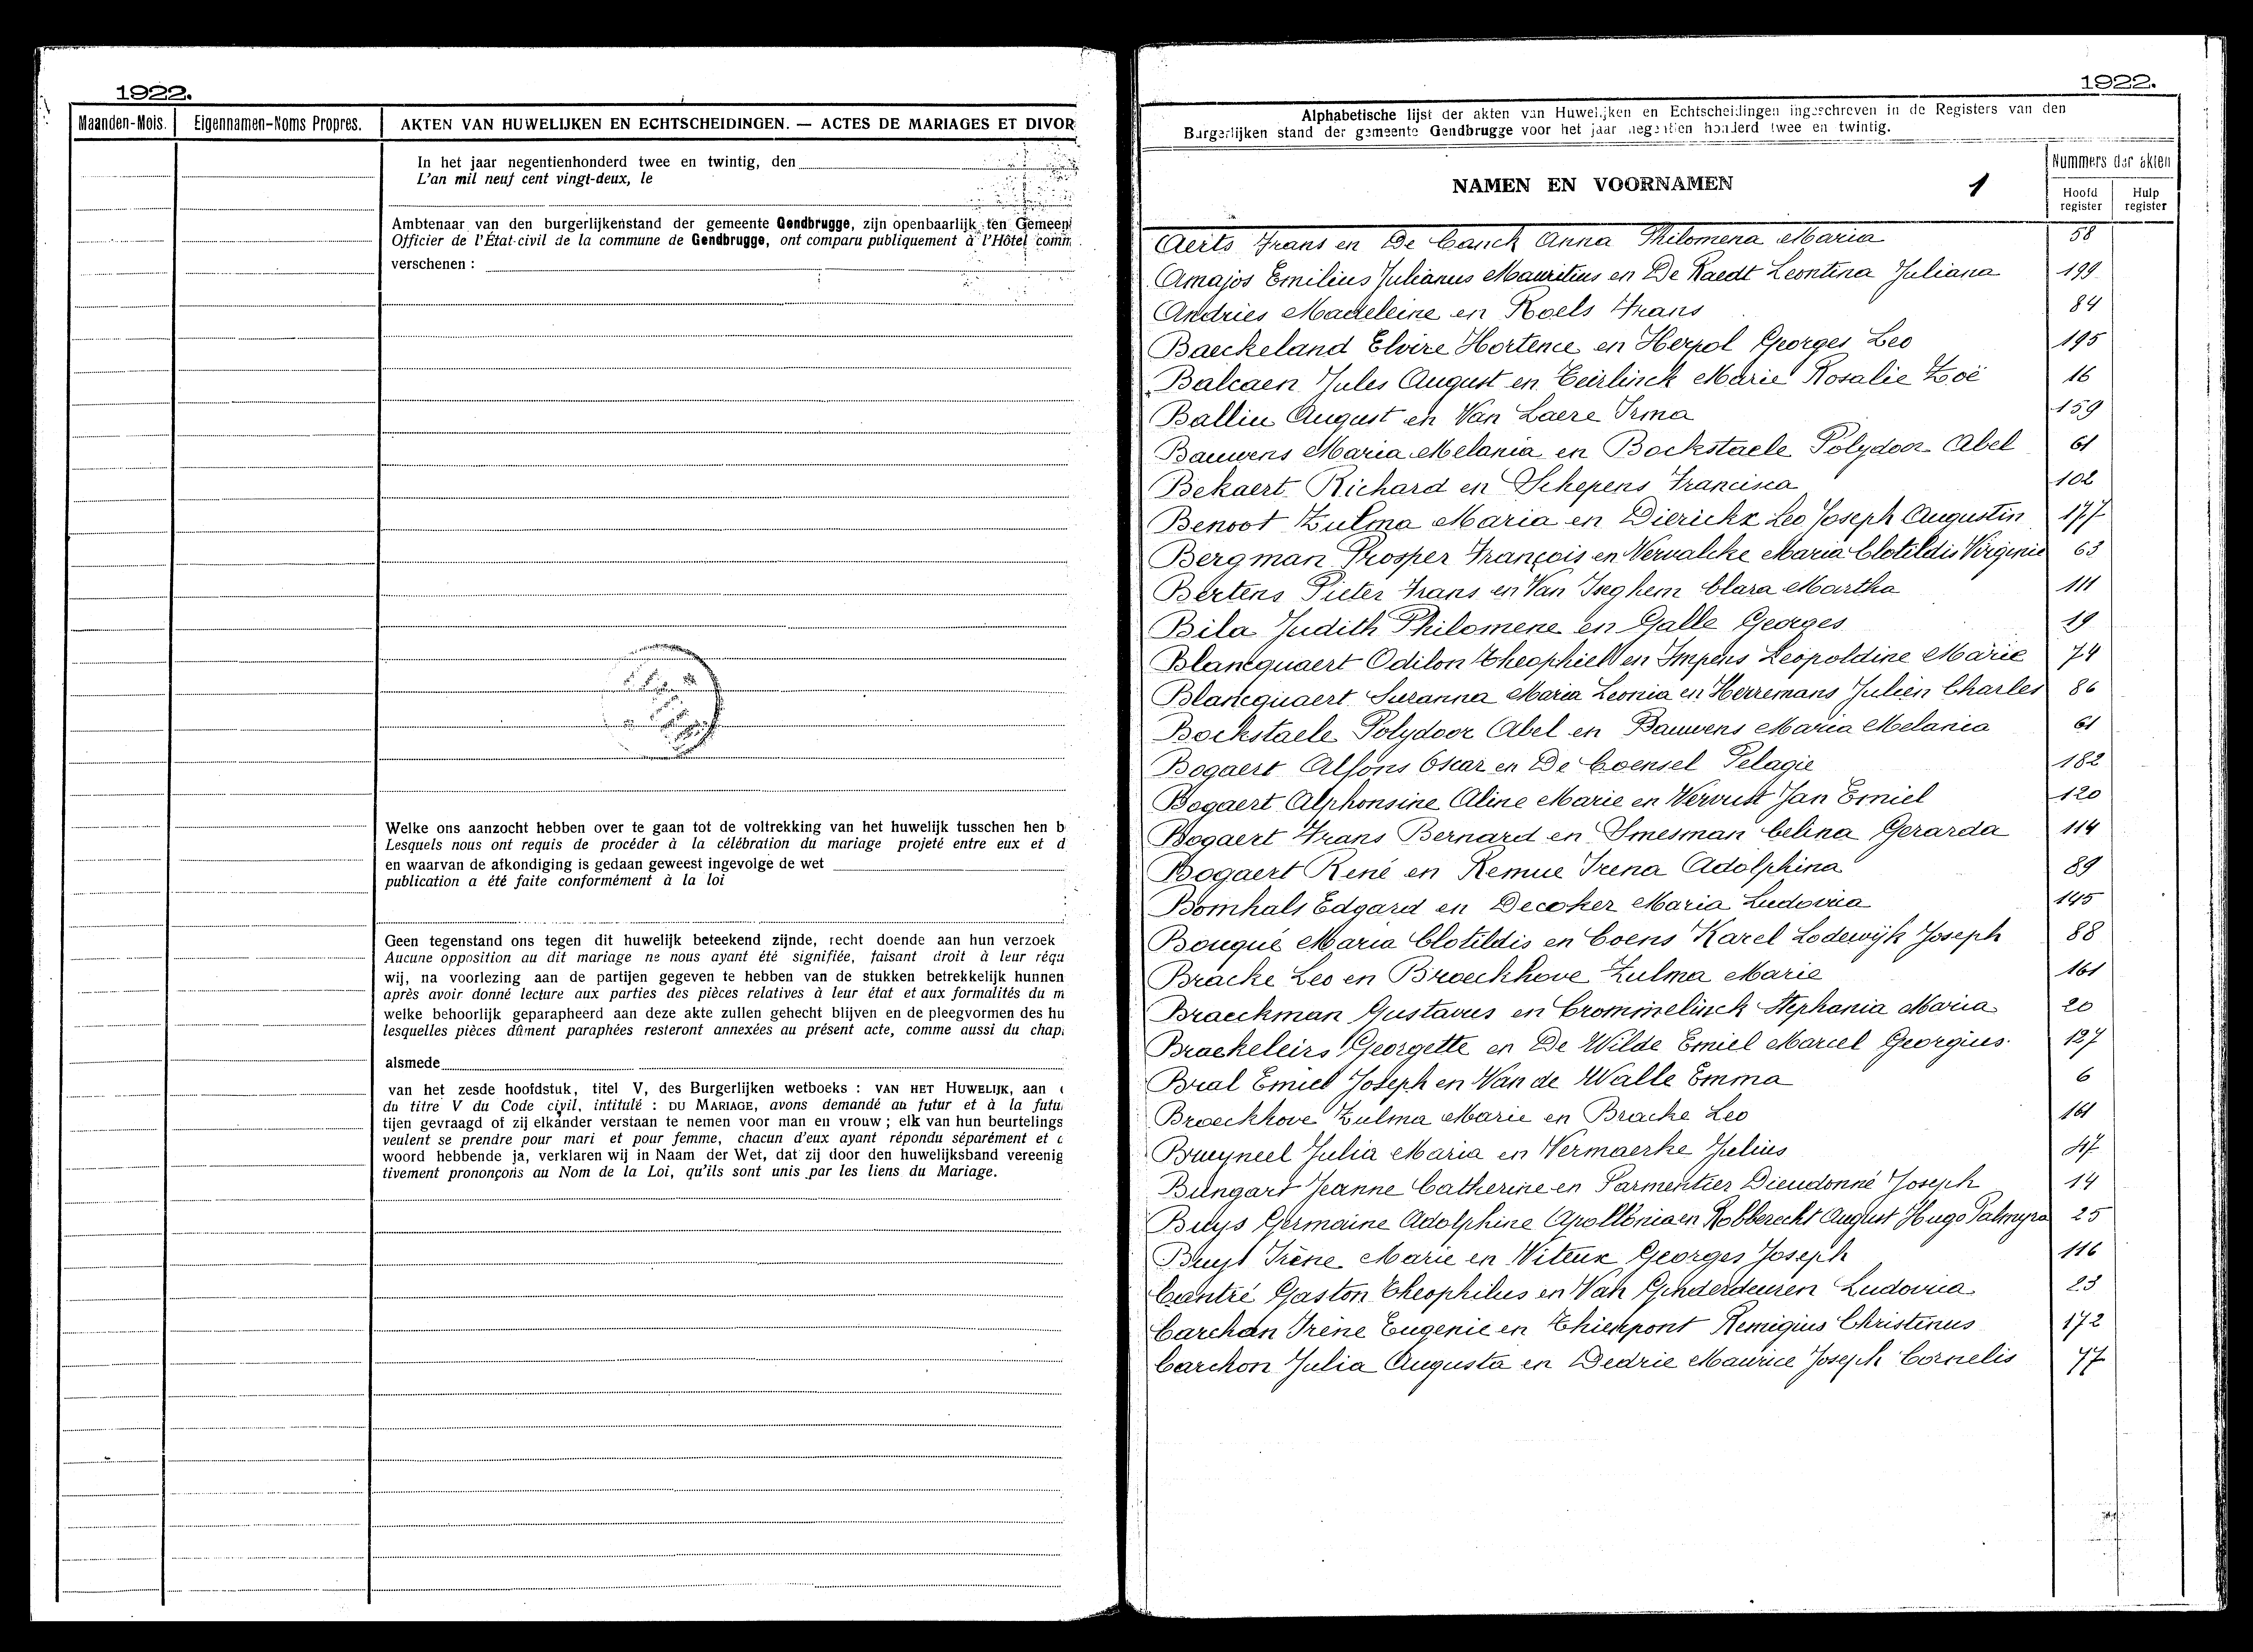 1922.
Maanden-Mois. Eigennamen-Noms Propres. AKTEN VAN HUWELIJKEN EN ECHTSCHEIDINGEN. — ACTES DE MARIAGES ET DIVOR
In het jaar negentienhonderd twee en twintig, den
L'an mil neuf cent vingt-deux, le
Ambtenaar van den burgerlijkenstand der gemeente Gendbrugge, zijn openbaarlijk ten Gemeen
Officier de l'État-civil de la commune de Gendbrugge, ont comparu publiquement à l'Hôtel comm
verschenen :
Welke ons aanzocht hebben over te gaan tot de voltrekking van het huwelijk tusschen hen b
Lesquels nous ont requis de procéder à la célébration du mariage projeté entre eux et d
en waarvan de afkondiging is gedaan geweest ingevolge de wet
publication a été faite conformément à la loi
Geen tegenstand ons tegen dit huwelijk beteekend zijnde, recht doende aan hun verzoek
Aucune opposition au dit mariage ne nous ayant été signifiée, faisant droit à leur réqu
wij, na voorlezing aan de partijen gegeven te hebben van de stukken betrekkelijk hunnen
après avoir donné lecture aux parties des pièces relatives à leur état et aux formalités du m
welke behoorlijk geparapheerd aan deze akte zullen gehecht blijven en de pleegvormen des hu
lesquelles pièces dûment paraphées resteront annexées au présent acte, comme aussi du chap
alsmede
van het zesde hoofdstuk, titel V, des Burgerlijken wetboeks : VAN HET HUWELIJK, aan
du titre V du Code civil, intitulé : DU MARIAGE, avons demandé au futur et à la futu
tijen gevraagd of zij elkander verstaan te nemen voor man en vrouw ; elk van hun beurtelings
veulent se prendre pour mari et pour femme, chacun d'eux ayant répondu séparément et
woord hebbende ja, verklaren wij in Naam der Wet, dat zij door den huwelijksband vereenig
tivement prononçons au Nom de la Loi, qu'ils sont unis par les liens du Mariage.
1922.
Alphabetische lijst der akten van Huwelijken en Echtscheidingen ingeschreven in de Registers van den
Burgerlijken stand der gemeente Gendbrugge voor het jaar negentien honderd twee en twintig.
NAMEN EN VOORNAMEN 1
Nummers der akten
Hoofd register Hulp register
Aerts Frans en De Canck Anna Philomena Maria 58
Amajos Emilius Julianus Mauritius en De Raedt Leontina Juliana 199
Andries Madeleine en Roels Frans 84
Baeckeland Elvire Hortence en Herpol Georges Leo 195
Balcaen Jules August en Teirlinck Marie Rosalie Zoë 16
Balliu August en Van Laere Irma 159
Bauwens Maria Melania en Bockstaele Polydoor Abel 61
Bekaert Richard en Schepens Francisca 102
Benoot Zulma Maria en Dierickx Leo Joseph Augustin 177
Bergman Prosper François en Vervalcke Maria Clotildis Virginie 63
Bertens Pieter Frans en Van Iseghem Clara Martha 111
Bila Judith Philomene en Galle Georges 19
Blancquaert Odilon Theophiel en Impens Leopoldine Marie 74
Blancquaert Suzanna Maria Leonia en Herremans Julien Charles 86
Bockstaele Polydoor Abel en Bauwens Maria Melania 61
Bogaert Alfons Oscar en De Coensel Pelagie 182
Bogaert Alphonsine Aline Marie en Vervust Jan Emiel 120
Bogaert Frans Bernard en Smesman Celina Gerarda 114
Bogaert René en Remue Irena Adolphina 89
Bomhals Edgard en Decoker Maria Ludovica 145
Bouqué Maria Clotildis en Coens Karel Lodewijk Joseph 88
Bracke Leo en Broeckhove Zulma Marie 161
Braeckman Gustavus en Crommelinck Stephania Maria 20
Braekeleirs Georgette en De Wilde Emiel Marcel Georgius 127
Bral Emiel Joseph en Van de Walle Emma 6
Broeckhove Zulma Marie en Bracke Leo 161
Bruyneel Julia Maria en Vermaerke Julius 47
Bungart Jeanne Catherine en Parmentier Dieudonné Joseph 14
Buys Germaine Adolphine Apollonia en Robberecht August Hugo Palmyra 25
Buyt Irène Marie en Witeux Georges Joseph 116
Cantré Gaston Theophilus en Van Ginderdeuren Ludovica 23
Carchan Irène Eugenie en Thienpont Remigius Christinus 172
Carchon Julia Augusta en Dedrie Maurice Joseph Cornelis 77